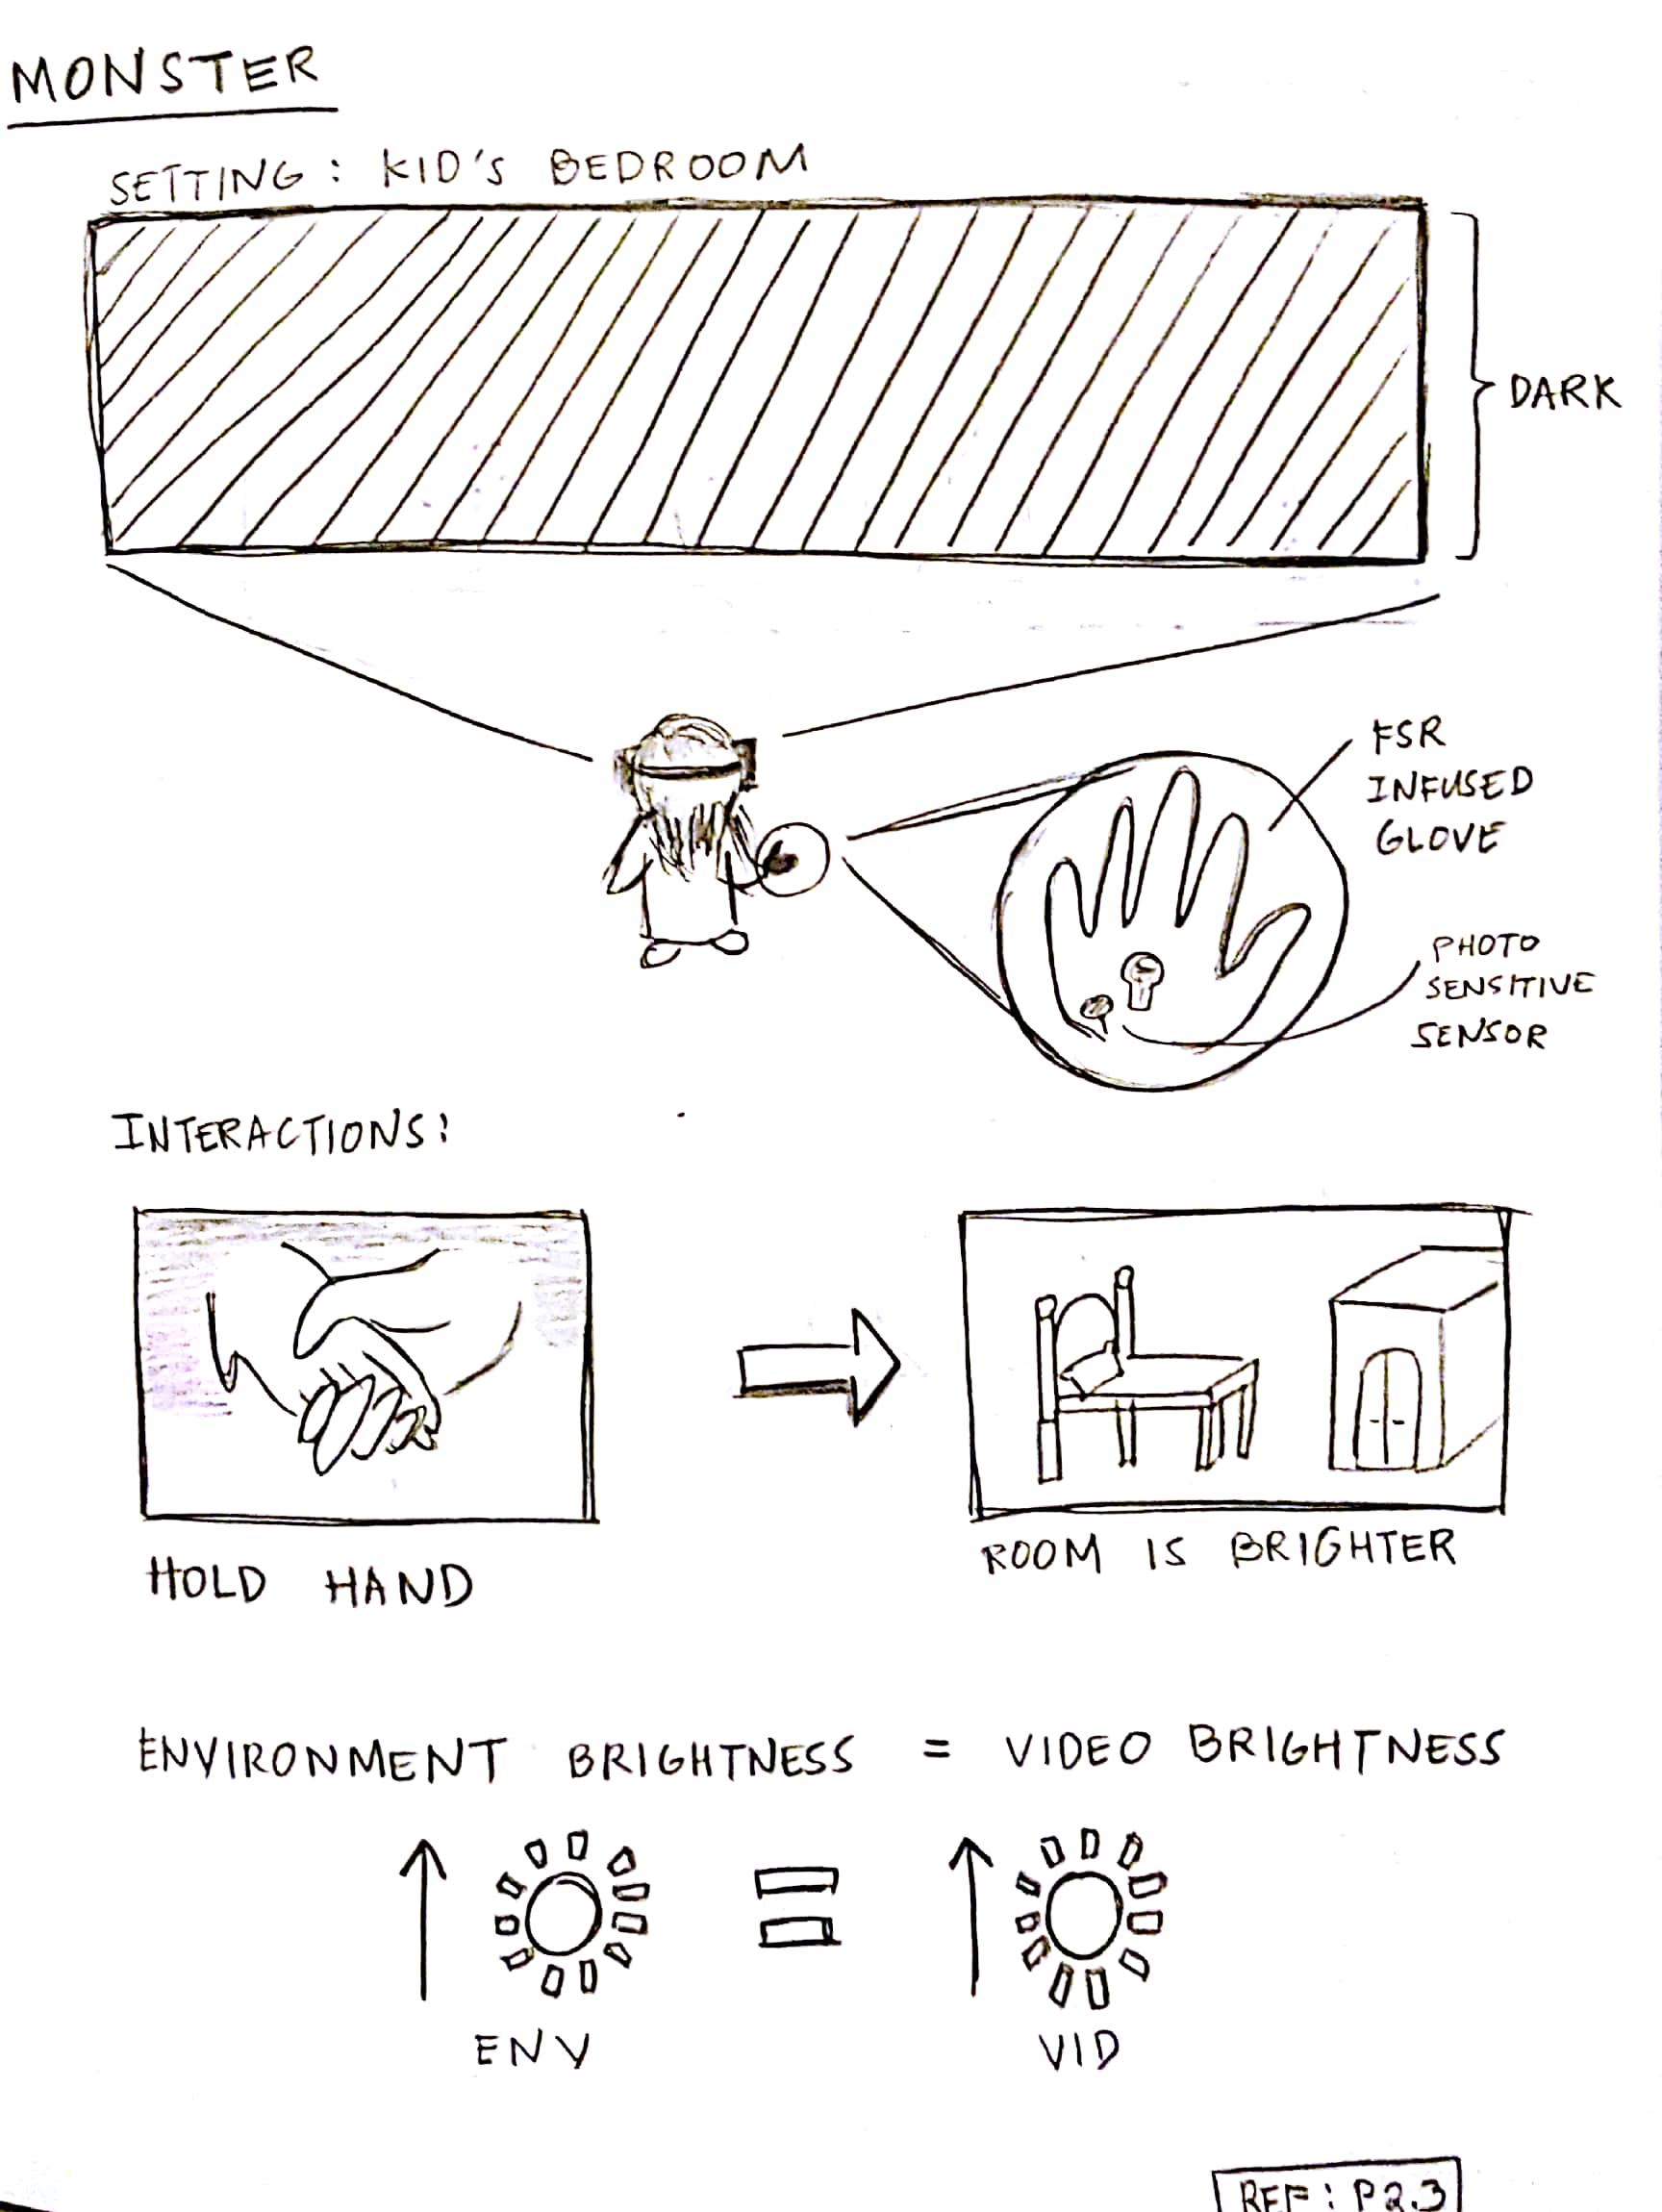 MONSTER
SETTING: KID'S BEDROOM
DARK
FSR
INFUSED
GLOVE
PHOTO
SENSITIVE
SENSOR
INTERACTIONS:
HOLD HAND
ROOM IS BRIGHTER
ENVIRONMENT BRIGHTNESS = VIDEO BRIGHTNESS
ENV
VID
REF: P2.3